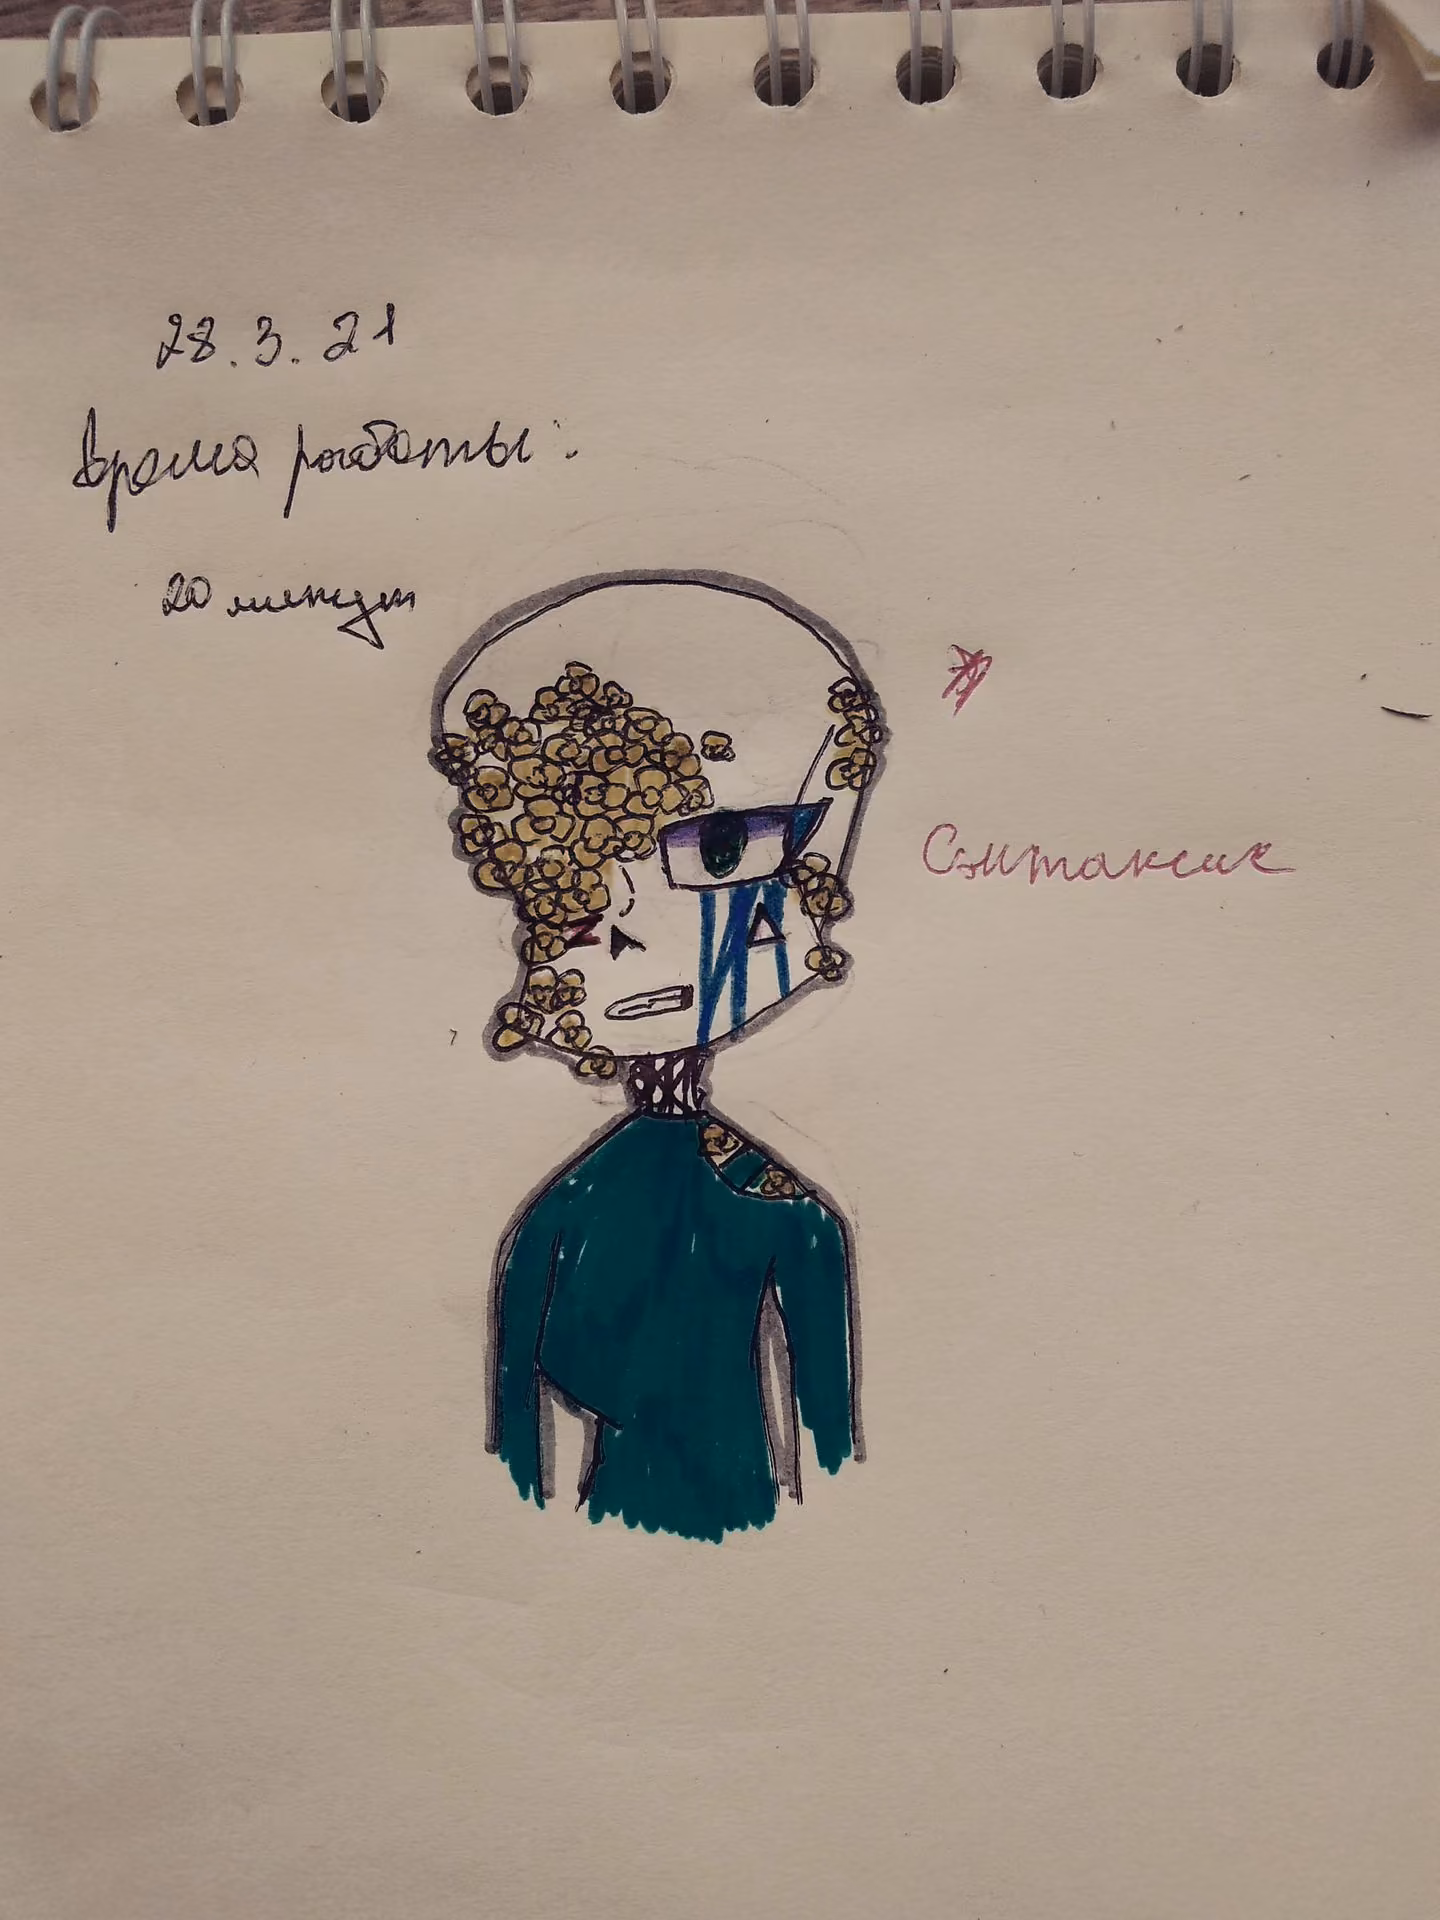 28.3.21
Время работы:
20 минут
Синтаксис